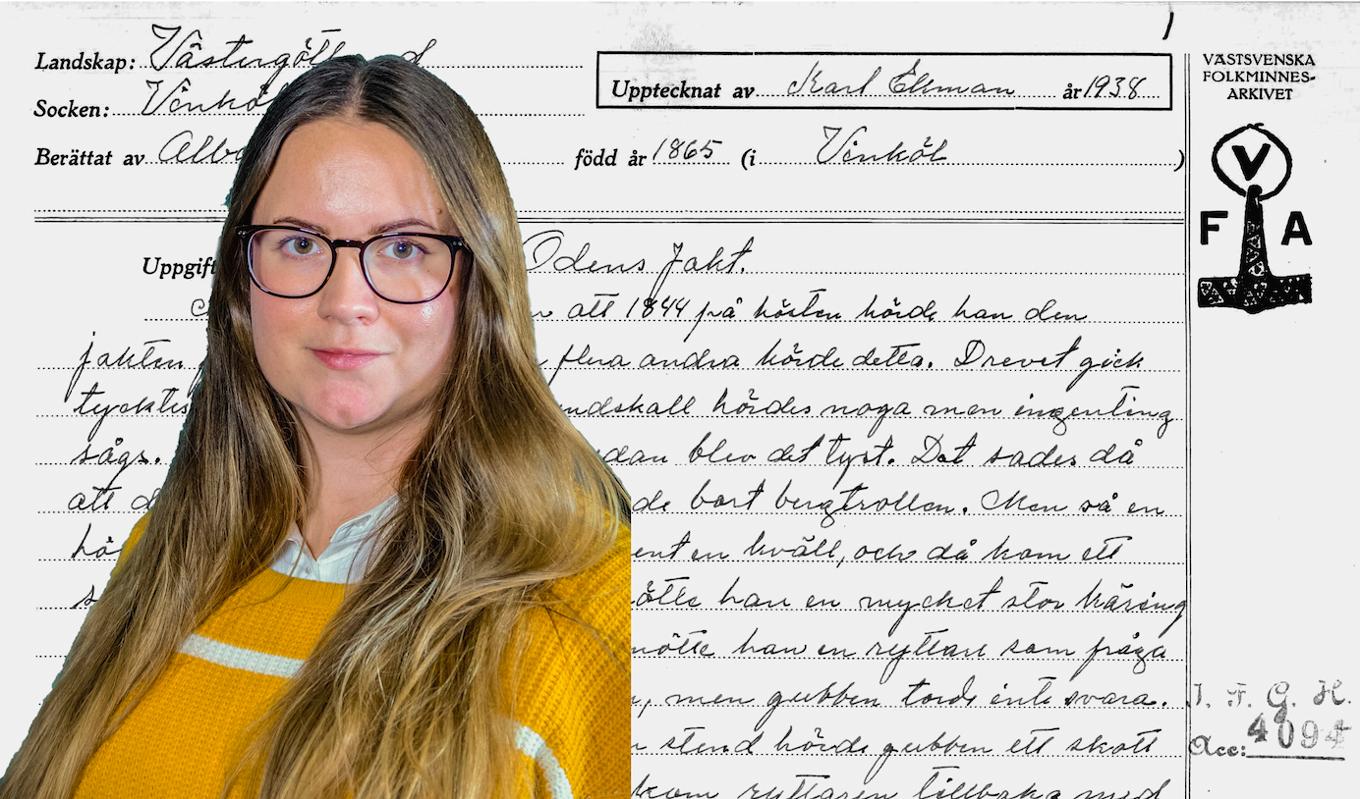 Landskap: Västergötl d
Socken: Vinköl
Berättat av Alb
Upptecknat av Karl Ekman år 1938
född år 1865 (i Vinköl )
1
VÄSTSVENSKA
FOLKMINNES-
ARKIVET
V
F A
Uppgift Odens Jakt.
att 1844 på hösten hörde han den
jakten flera andra hörde detta. Drevet gick
tycktes ndskall hördes noga men ingenting
sågs. dan blev det tyst. Det sades då
att d de bort bergtrollen. Men så en
hö ent en kväll, och då kom ett
s ötte han en mycket stor käring
mötte han en ryttare som fråga
, men gubben tords inte svara.
stund hörde gubben ett skott
kom ryttaren tillbaka med
I. F. G. H.
Acc: 4094